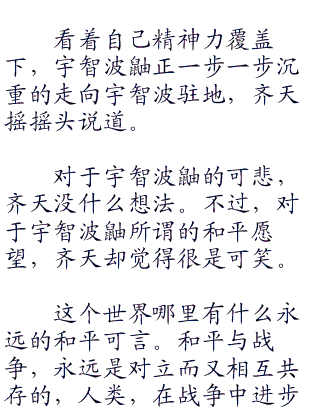 看着自己精神力覆盖
下，宇智波鼬正一步一步沉
重的走向宇智波驻地，齐天
摇摇头说道。
对于宇智波鼬的可悲，
齐天没什么想法。不过，对
于宇智波鼬所谓的和平愿
望，齐天却觉得很是可笑。
这个世界哪里有什么永
远的和平可言。和平与战
争，永远是对立而又相互共
存的，人类，在战争中进步